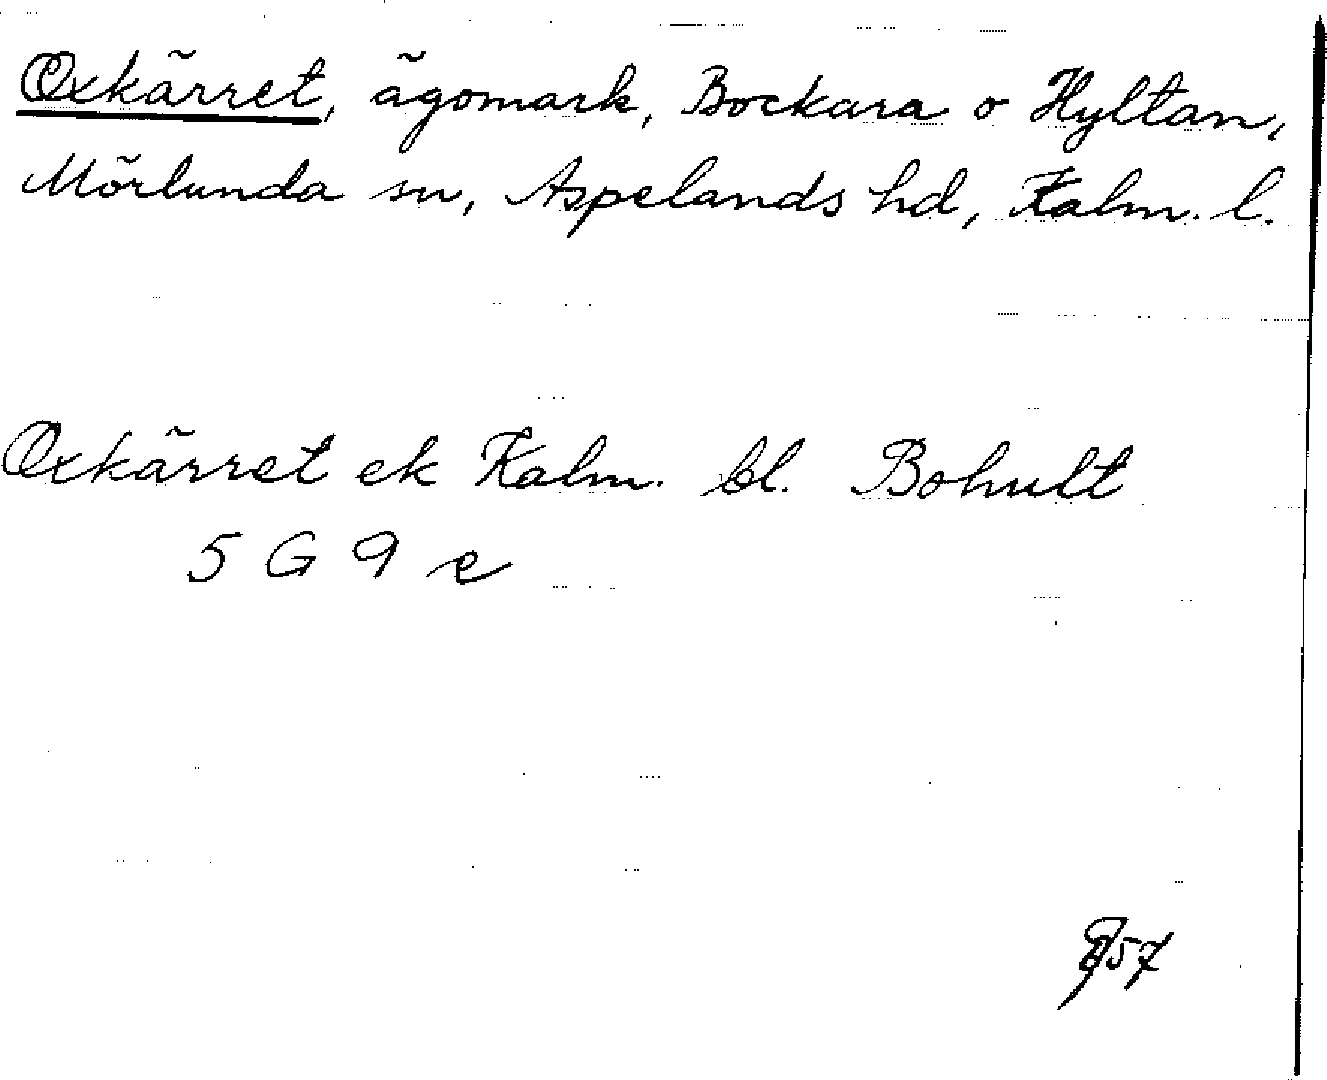 Oxkärret, ägomark, Bockara o Hyltan,
Mörlunda sn, Aspelands hd, Kalm. l.
Oxkärret ek Kalm. bl. Bohult
5 G 9 e
57